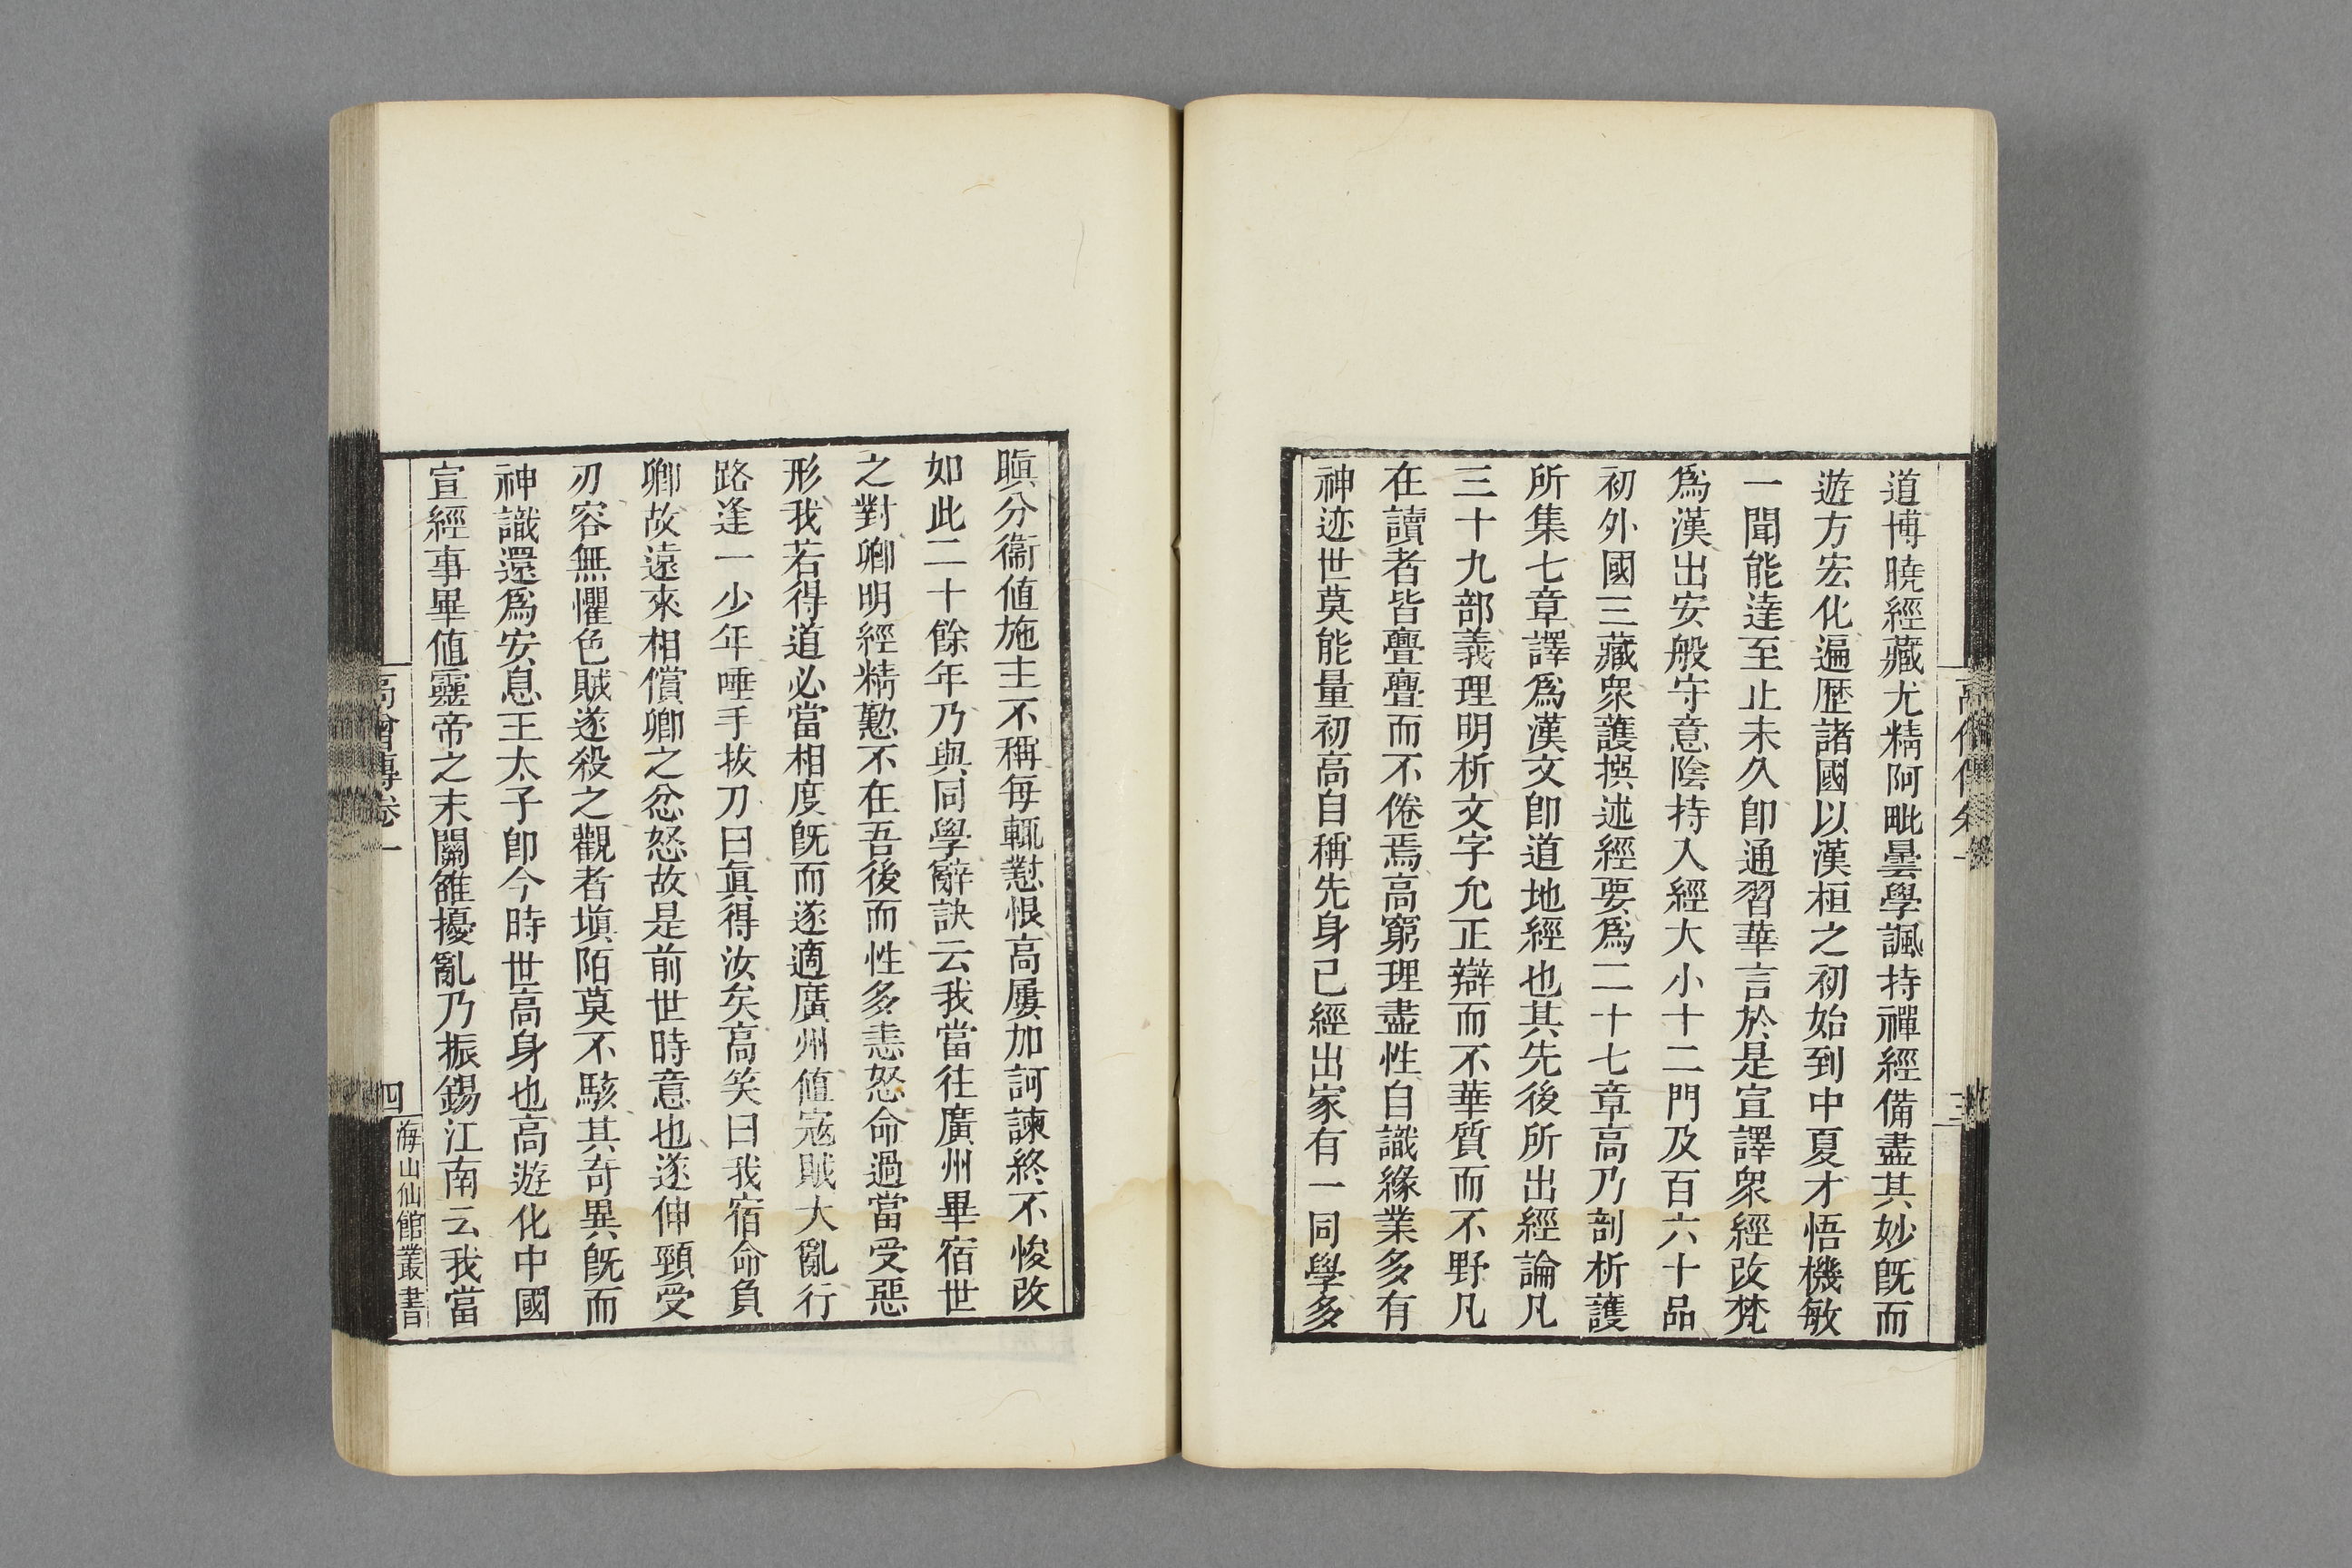 高僧傳卷一
三
道博曉經藏尤精阿毗曇學諷持禪經備盡其妙旣而
遊方宏化遍歷諸國以漢桓之初始到中夏才悟機敏
一聞能達至止未久卽通習華言於是宣譯衆經改梵
爲漢出安般守意陰持入經大小十二門及百六十品
初外國三藏衆護撰述經要爲二十七章高乃剖析護
所集七章譯爲漢文卽道地經也其先後所出經論凡
三十九部義理明析文字允正辯而不華質而不野凡
在讀者皆亹亹而不倦焉高窮理盡性自識緣業多有
神迹世莫能量初高自稱先身已經出家有一同學多
瞋分衞値施主不稱每輒懟恨高屢加訶諫終不悛改
如此二十餘年乃與同學辭訣云我當往廣州畢宿世
之對卿明經精懃不在吾後而性多恚怒命過當受惡
形我若得道必當相度旣而遂適廣州値寇賊大亂行
路逢一少年唾手拔刀曰眞得汝矣高笑曰我宿命負
卿故遠來相償卿之忿怒故是前世時意也遂伸頸受
刃容無懼色賊遂殺之觀者塡陌莫不駭其奇異旣而
神識還爲安息王太子卽今時世高身也高遊化中國
宣經事畢値靈帝之末關雒擾亂乃振錫江南云我當
高僧傳卷一
四
海山仙館叢書